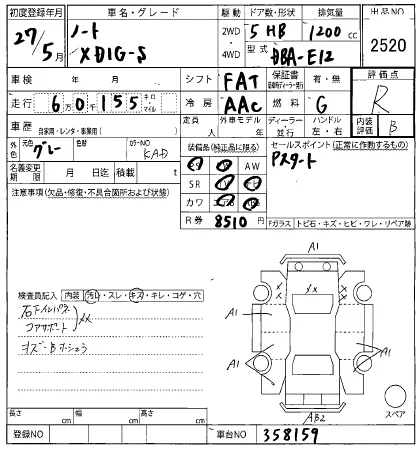 初度登録年月 車名・グレード 駆動 ドア数・形状 排気量 出品NO
27/5月 ノート X DIG-S 2WD・4WD 5 HB 1200 cc 2520
型式 DBA-E12
車検 年 月 シフト FAT 保証書 有・無 評価点
走行 6万0千155 キロ・マイル 冷房 AAC 燃料 G R
車歴 自家用・レンタ・事業用( ) 定員 人 外車モデル 年 ディーラー・並行 ハンドル 左・右 内装評価 B
外色 元色 グレー 色替 カラーNO KAD 装備品(純正品に限る) セールスポイント(正常に作動するもの)
PS AW Pスタート
名義変更期限 月 日迄 積載 t SR
注意事項(欠品・修復・不具合箇所および状態) カワ
R券 8510円 Fガラス・トビ石・キズ・ヒビ・ワレ・リペア跡
A1
検査員記入 内装 汚レ・スレ・キズ・キレ・コゲ・穴 XX
右Fインパネ XX A1 A1
コアサポート
A1 A1
AB2 スペア
長さ cm 幅 cm 高さ cm
登録NO 車台NO 358159